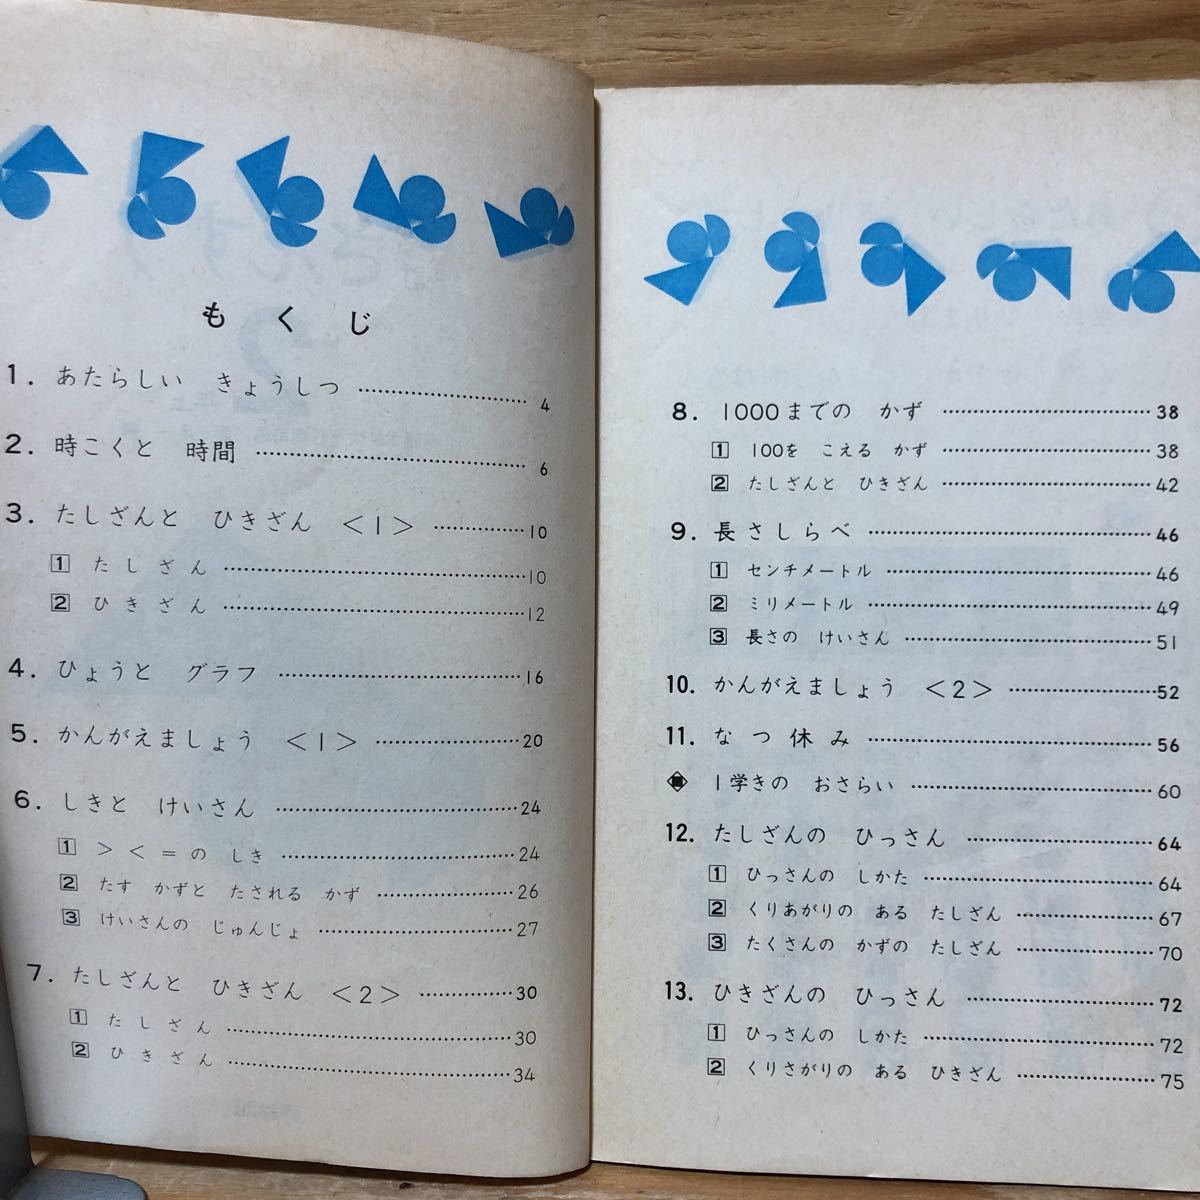 もくじ
1. あたらしい きょうしつ …… 4
2. 時こくと 時間 …… 6
3. たしざんと ひきざん <1> …… 10
1 たしざん …… 10
2 ひきざん …… 12
4. ひょうと グラフ …… 16
5. かんがえましょう <1> …… 20
6. しきと けいさん …… 24
1 > < = の しき …… 24
2 たす かずと たされる かず …… 26
3 けいさんの じゅんじょ …… 27
7. たしざんと ひきざん <2> …… 30
1 たしざん …… 30
2 ひきざん …… 34
8. 1000までの かず …… 38
1 100を こえる かず …… 38
2 たしざんと ひきざん …… 42
9. 長さしらべ …… 46
1 センチメートル …… 46
2 ミリメートル …… 49
3 長さの けいさん …… 51
10. かんがえましょう <2> …… 52
11. なつ休み …… 56
◈ 1学きの おさらい …… 60
12. たしざんの ひっさん …… 64
1 ひっさんの しかた …… 64
2 くりあがりの ある たしざん …… 67
3 たくさんの かずの たしざん …… 70
13. ひきざんの ひっさん …… 72
1 ひっさんの しかた …… 72
2 くりさがりの ある ひきざん …… 75